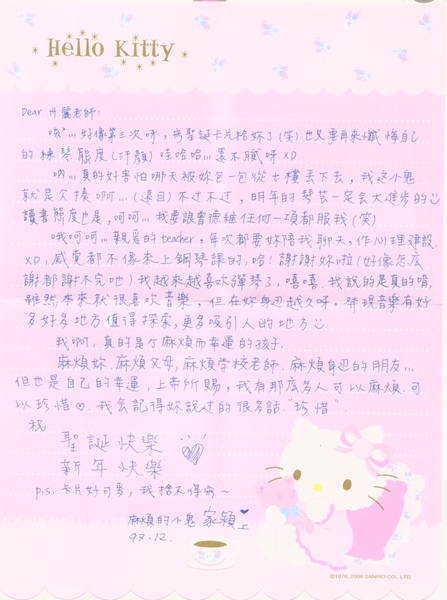 Hello Kitty
Dear 卅麗老師:
咳~... 好像第三次呀,寫聖誕卡片給妳了(笑) 也又要再來懺悔自己
的練琴態度(汗顏) 哇哈哈... 還不膩呀 XD
吶... 真的好害怕哪天被妳包一包從七樓丟下去,我這小鬼
就是欠揍啊... (遠目) 不过不过,明年的琴艺一定会大進步的
讀書態度也是,呵呵... 我要讓曾德維任何一項都服我(笑)
哦呵呵... 親愛的 teacher,每次都要妳陪我聊天,作心理建設
XD,感覺都不像來上鋼琴課的,哈! 謝謝妳啦(好像怎庅
謝都謝不完吔) 我越來越喜欢彈琴了,嘻嘻,我說的是真的唷,
雖然本來就很喜欢音樂,但在妳身边越久呀,發現音樂有好
多好多地方值得探索,更多吸引人的地方
我啊,真的是个麻煩而幸運的孩子.
麻煩妳.麻煩父母,麻煩学校老師.麻煩身边的朋友...
但也是自己的幸運,上帝所賜,我有那庅多人可以麻煩.可
以珍惜♡.我会記得妳說过的很多話"珍惜".
祝
聖誕快樂
新年快樂
p.s. 卡片好可爱,我捨不得寫~
麻煩的小鬼 家穎 上
97.12.
©1976, 2008 SANRIO CO., LTD.